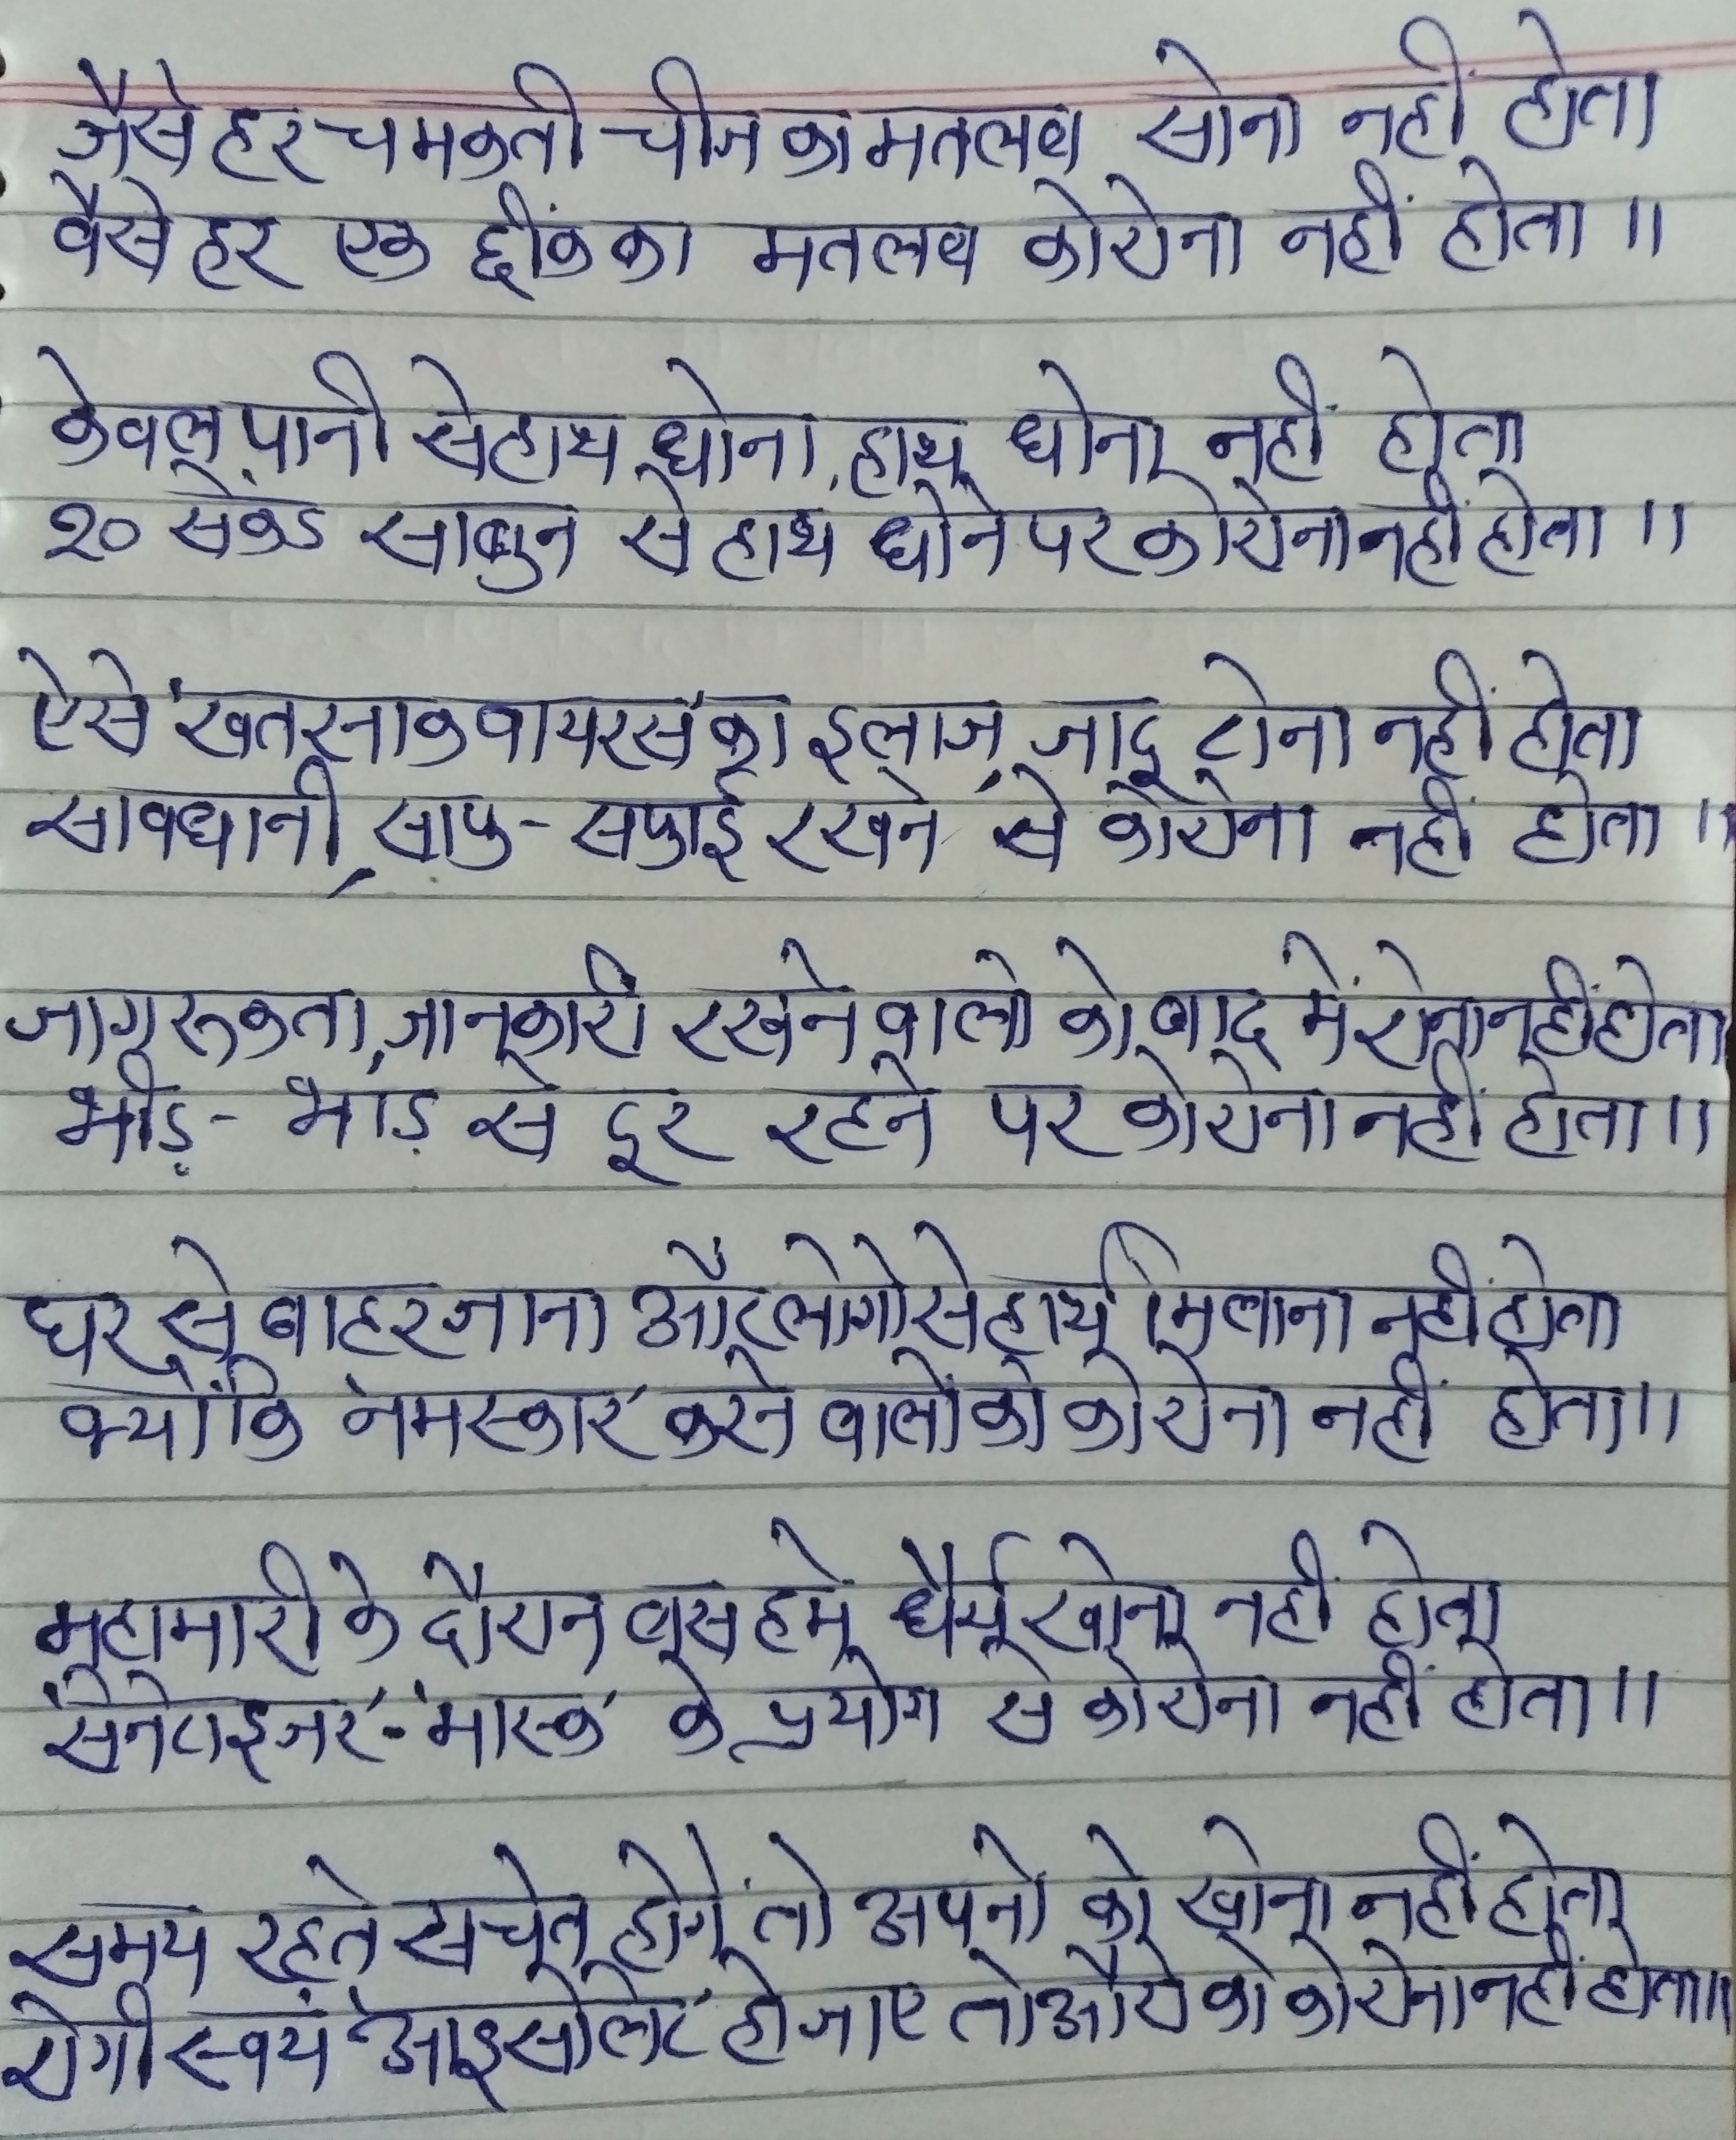 जैसे हर चमकती चीज का मतलब सोना नहीं होता
वैसे हर एक छींक का मतलब कोरोना नहीं होता ॥
केवल पानी से हाथ धोना, हाथ धोना नहीं होता
२० सेकंड साबुन से हाथ धोने पर कोरोना नहीं होता ॥
ऐसे 'खतरनाक वायरस' का इलाज, जादू टोना नहीं होता
सावधानी, साफ - सफाई रखने से कोरोना नहीं होता ॥
जागरूकता, जानकारी रखने वालो को बाद में रोना नहीं होता
भीड़ - भाड़ से दूर रहने पर कोरोना नहीं होता ॥
घर से बाहर जाना और लोगो से हाथ मिलाना नहीं होता
क्योंकि 'नमस्कार' करने वालों को कोरोना नहीं होता ॥
महामारी के दौरान बस हमे धैर्य खोना नहीं होता
'सेनेटाइजर' - 'मास्क' के प्रयोग से कोरोना नहीं होता ॥
समय रहते सचेत होगें तो अपनो को खोना नहीं होता
रोगी स्वयं 'आइसोलेट' हो जाए तो औरो को कोरोना नहीं होता ॥